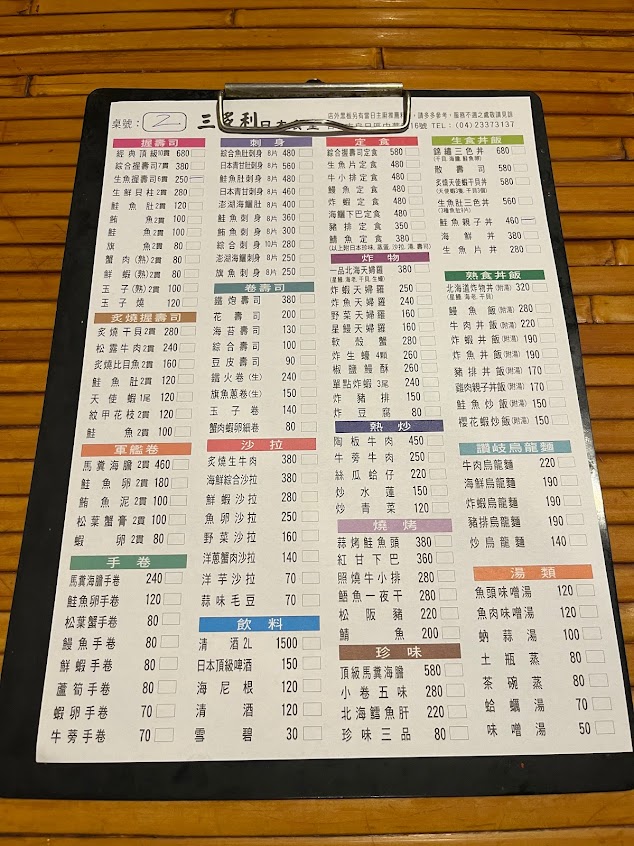 桌號： 2
三多利日本
店外黑板另有當日主廚推薦料理，請多多參考，服務不週之處敬請見諒
16號 TEL：(04)23373137
握壽司
經典頂級10貫 680
綜合握壽司7貫 380
生魚握壽司6貫 250
生鮮貝柱2貫 280
魚肚2貫 200
鮪魚2貫 170
鮭魚2貫 100
旗魚2貫 80
蟹肉(熟)2貫 80
鮮蝦(熟)2貫 80
玉子(熟)2貫 50
玉子燒 120
炙燒握壽司
炙燒干貝2貫 280
松露牛肉2貫 240
炙燒比目魚2貫 160
鮭魚肚2貫 120
天使蝦1尾 120
紋甲花枝2貫 100
鮭魚2貫 100
軍艦卷
馬糞海膽2貫 460
鮭魚卵2貫 180
鮪魚泥2貫 100
松葉蟹膏2貫 100
蝦卵2貫 80
手卷
馬糞海膽手卷 240
鮭魚卵手卷 120
松葉蟹手卷 80
鰻魚手卷 80
鮮蝦手卷 80
蘆筍手卷 80
蝦卵手卷 70
牛蒡手卷 70
刺身
綜合魚肚刺身 8片 480
日本青甘肚刺身 8片 480
鮭魚肚刺身 8片 480
日本青甘刺身 8片 460
澎湖海鱺肚 8片 400
鮭魚刺身 8片 360
鮪魚刺身 8片 300
綜合刺身 10片 280
澎湖海鱺刺身 8片 250
旗魚刺身 8片 250
卷壽司
鐵炮壽司 380
花壽司 200
海苔壽司 130
綜合壽司 100
豆皮壽司 90
鐵火卷(生) 240
旗魚蔥卷(生) 150
玉子卷 140
蟹肉蝦卵細卷 80
沙拉
炙燒生牛肉 380
海鮮綜合沙拉 380
鮮蝦沙拉 280
魚卵沙拉 250
野菜沙拉 160
洋蔥蟹肉沙拉 140
洋芋沙拉 70
蒜味毛豆 70
飲料
清酒2L 1500
日本頂級啤酒 150
海尼根 120
清酒 120
雪碧 30
定食
綜合握壽司定食 580
生魚片定食 480
牛小排定食 480
鰻魚定食 480
炸蝦定食 480
海鱺下巴定食 480
豬排定食 350
鯖魚定食 380
(以上附日本珍味、蒸蛋、沙拉、湯、壽司)
炸物
一品北海天婦羅 380
(星鰻、海老、干貝、生蠔)
炸蝦天婦羅 250
炸魚天婦羅 240
野菜天婦羅 160
星鰻天婦羅 160
軟殼蟹 280
炸生蠔4顆 360
椒鹽鰻酥 260
單點炸蝦3尾 240
炸豬排 150
炸豆腐 80
熱炒
陶板牛肉 450
牛蒡牛肉 250
絲瓜蛤仔 220
炒水蓮 150
炒青菜 120
燒烤
蒜烤鮭魚頭 380
紅甘下巴 360
照燒牛小排 280
魚一夜干 280
松阪豬 220
鯖魚 200
珍味
頂級馬糞海膽 580
小卷五味 280
北海鱈魚肝 220
珍味三品 80
生食丼飯
錦繡三色丼 680
(干貝、海膽、鮭魚卵)
散壽司 580
炙燒天使蝦干貝丼 580
(天使蝦3尾、干貝3個)
生魚肚三色丼 560
(3種魚肚9片)
鮭魚親子丼 460
海鮮丼 380
生魚片丼 280
熟食丼飯
北海道炸物丼(附湯) 320
(星鰻、海老、干貝)
鰻魚飯(附湯) 280
牛肉丼飯(附湯) 220
炸蝦丼飯(附湯) 190
炸魚丼飯(附湯) 190
豬排丼飯(附湯) 190
雞肉親子丼飯(附湯) 170
鮭魚炒飯(附湯) 150
櫻花蝦炒飯(附湯) 150
讚岐烏龍麵
牛肉烏龍麵 220
海鮮烏龍麵 190
炸蝦烏龍麵 190
豬排烏龍麵 190
炒烏龍麵 140
湯類
魚頭味噌湯 120
魚肉味噌湯 120
蚋蒜湯 100
土瓶蒸 80
茶碗蒸 80
蛤蠣湯 70
味噌湯 50